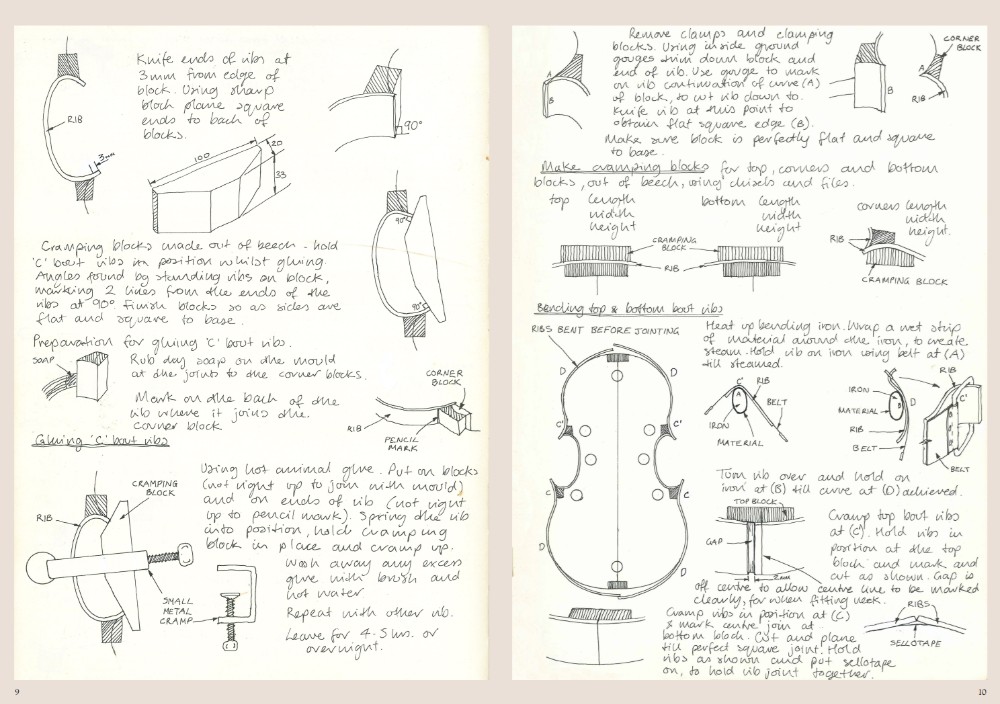 Knife ends of ribs at
3mm from edge of
block. Using sharp
block plane square
ends to back of
blocks.
RIB
3mm
90°
100
20
33
90°
90°
Cramping blocks made out of beech - hold
'C' bout ribs in position whilst gluing.
Angles found by standing ribs on block,
marking 2 lines from the ends of the
ribs at 90° Finish blocks so as sides are
flat and square to base.
Preparation for gluing 'C' bout ribs.
SOAP
Rub dry soap on the mould
at the joints to the corner blocks.
Mark on the back of the
rib where it joins the
corner block
CORNER
BLOCK
RIB
PENCIL
MARK
Gluing 'C' bout ribs
Using hot animal glue. Put on blocks
(not right up to join with mould)
and on ends of rib (not right
up to pencil mark). Spring the rib
into position, hold cramping
block in place and cramp up.
Wash away any excess
glue with brush and
hot water
Repeat with other rib.
Leave for 4-5 hrs. or
overnight.
CRAMPING
BLOCK
RIB
SMALL
METAL
CRAMP
9
Remove clamps and clamping
blocks. Using inside ground
gouges trim down block and
end of rib. Use gouge to mark
on rib continuation of curve (A)
of block, to cut rib down to.
Knife rib at this point to
obtain flat square edge (B).
Make sure block is perfectly flat and square
to base.
A
B
B
CORNER
BLOCK
A
RIB
Make cramping blocks for top, corners and bottom
blocks, out of beech, using chisels and files.
top length
width
height
bottom length
width
height
corners length
width
height.
CRAMPING
BLOCK
RIB
RIB
CRAMPING BLOCK
Bending top & bottom bout ribs
RIBS BENT BEFORE JOINTING
Heat up bending iron. Wrap a wet strip
of material around the iron, to create
steam. Hold rib on iron using belt at (A)
till steamed.
D
D
C'
C'
C
C
D
D
C'
RIB
A
BELT
IRON
MATERIAL
IRON
MATERIAL
RIB
BELT
B
D
RIB
C'
B
BELT
Turn rib over and hold on
iron at (B) till curve at (D) achieved.
TOP BLOCK
GAP
2mm
Cramp top bout ribs
at (C'). Hold ribs in
position at the top
block and mark and
cut as shown. Gap is
off centre to allow centre line to be marked
clearly, for when fitting neck.
Cramp ribs in position at (C)
& mark centre join at
bottom block. Cut and plane
till perfect square joint. Hold
ribs as shown and put sellotape
on, to hold rib joint together.
RIBS
SELLOTAPE
10